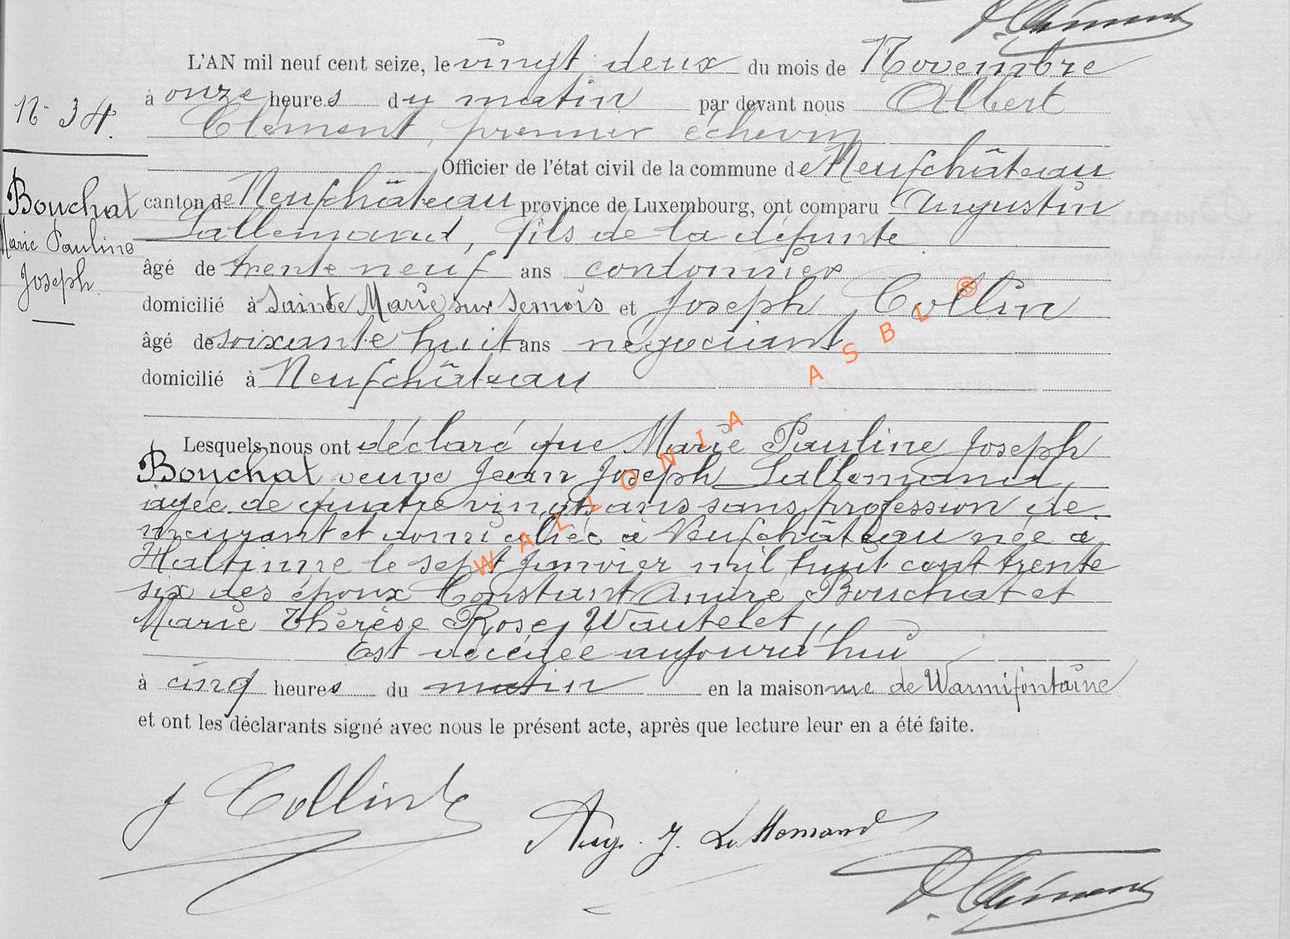 L'AN mil neuf cent seize, le vingt deux du mois de Novembre
à onze heures du matin par devant nous Albert
N° 34.
Clément, premier échevin
Officier de l'état civil de la commune de Neufchâteau
Bouchat
Marie Pauline
Joseph
canton de Neufchâteau province de Luxembourg, ont comparu Augustin
Lallemand, fils de la défunte
âgé de trente neuf ans cordonnier
domicilié à Sainte Marie sur Semois et Joseph Collin
âgé de soixante huit ans négociant
domicilié à Neufchâteau
Lesquels nous ont déclaré que Marie Pauline Joseph
Bouchat veuve Jean Joseph Lallemand
âgée de quatre vingt ans sans profession de
meurant et domiciliée à Neufchâteau née à
Haltinne le sept janvier mil huit cent trente
six des époux Constant André Bouchat et
Marie Thérèse Rose Wautelet,
Est décédée aujourd'hui
à cinq heures du matin en la maison rue de Warmifontaine
et ont les déclarants signé avec nous le présent acte, après que lecture leur en a été faite.
J Collin
Aug. J. Lallemand
Clément
WALLONIA ASBL ®